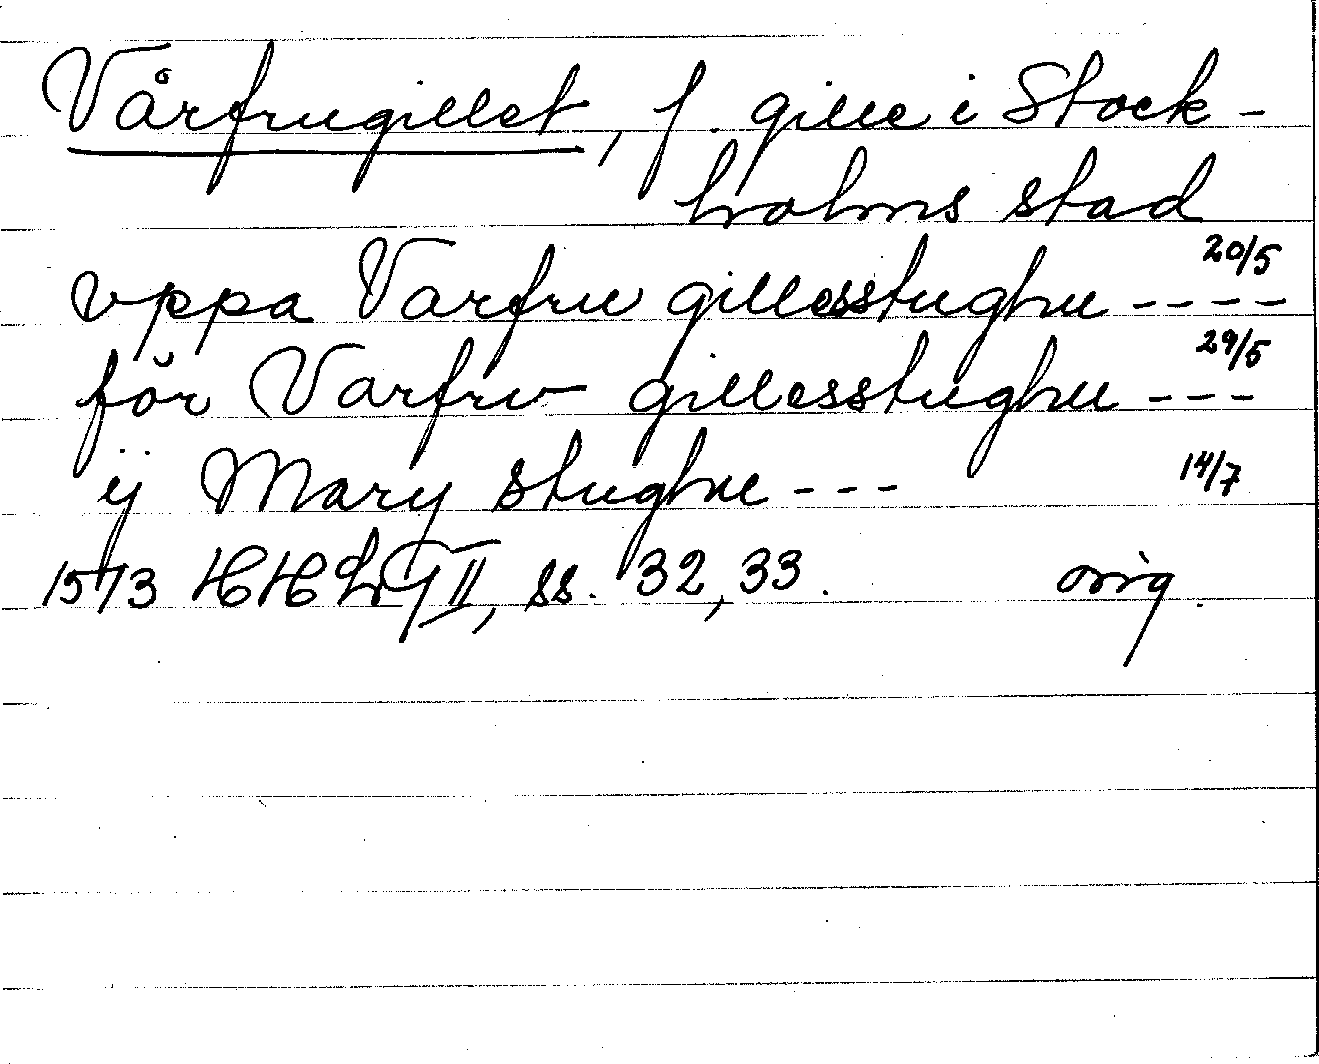 Vårfrugillet, f. gille i Stock-
holms stad
vppa Varfru gillesstughu ---- 20/5
för Varfrv gillesstughu --- 29/5
ÿ Mary stughu --- 14/7
1573 HHLT II, ss. 32, 33. orig.